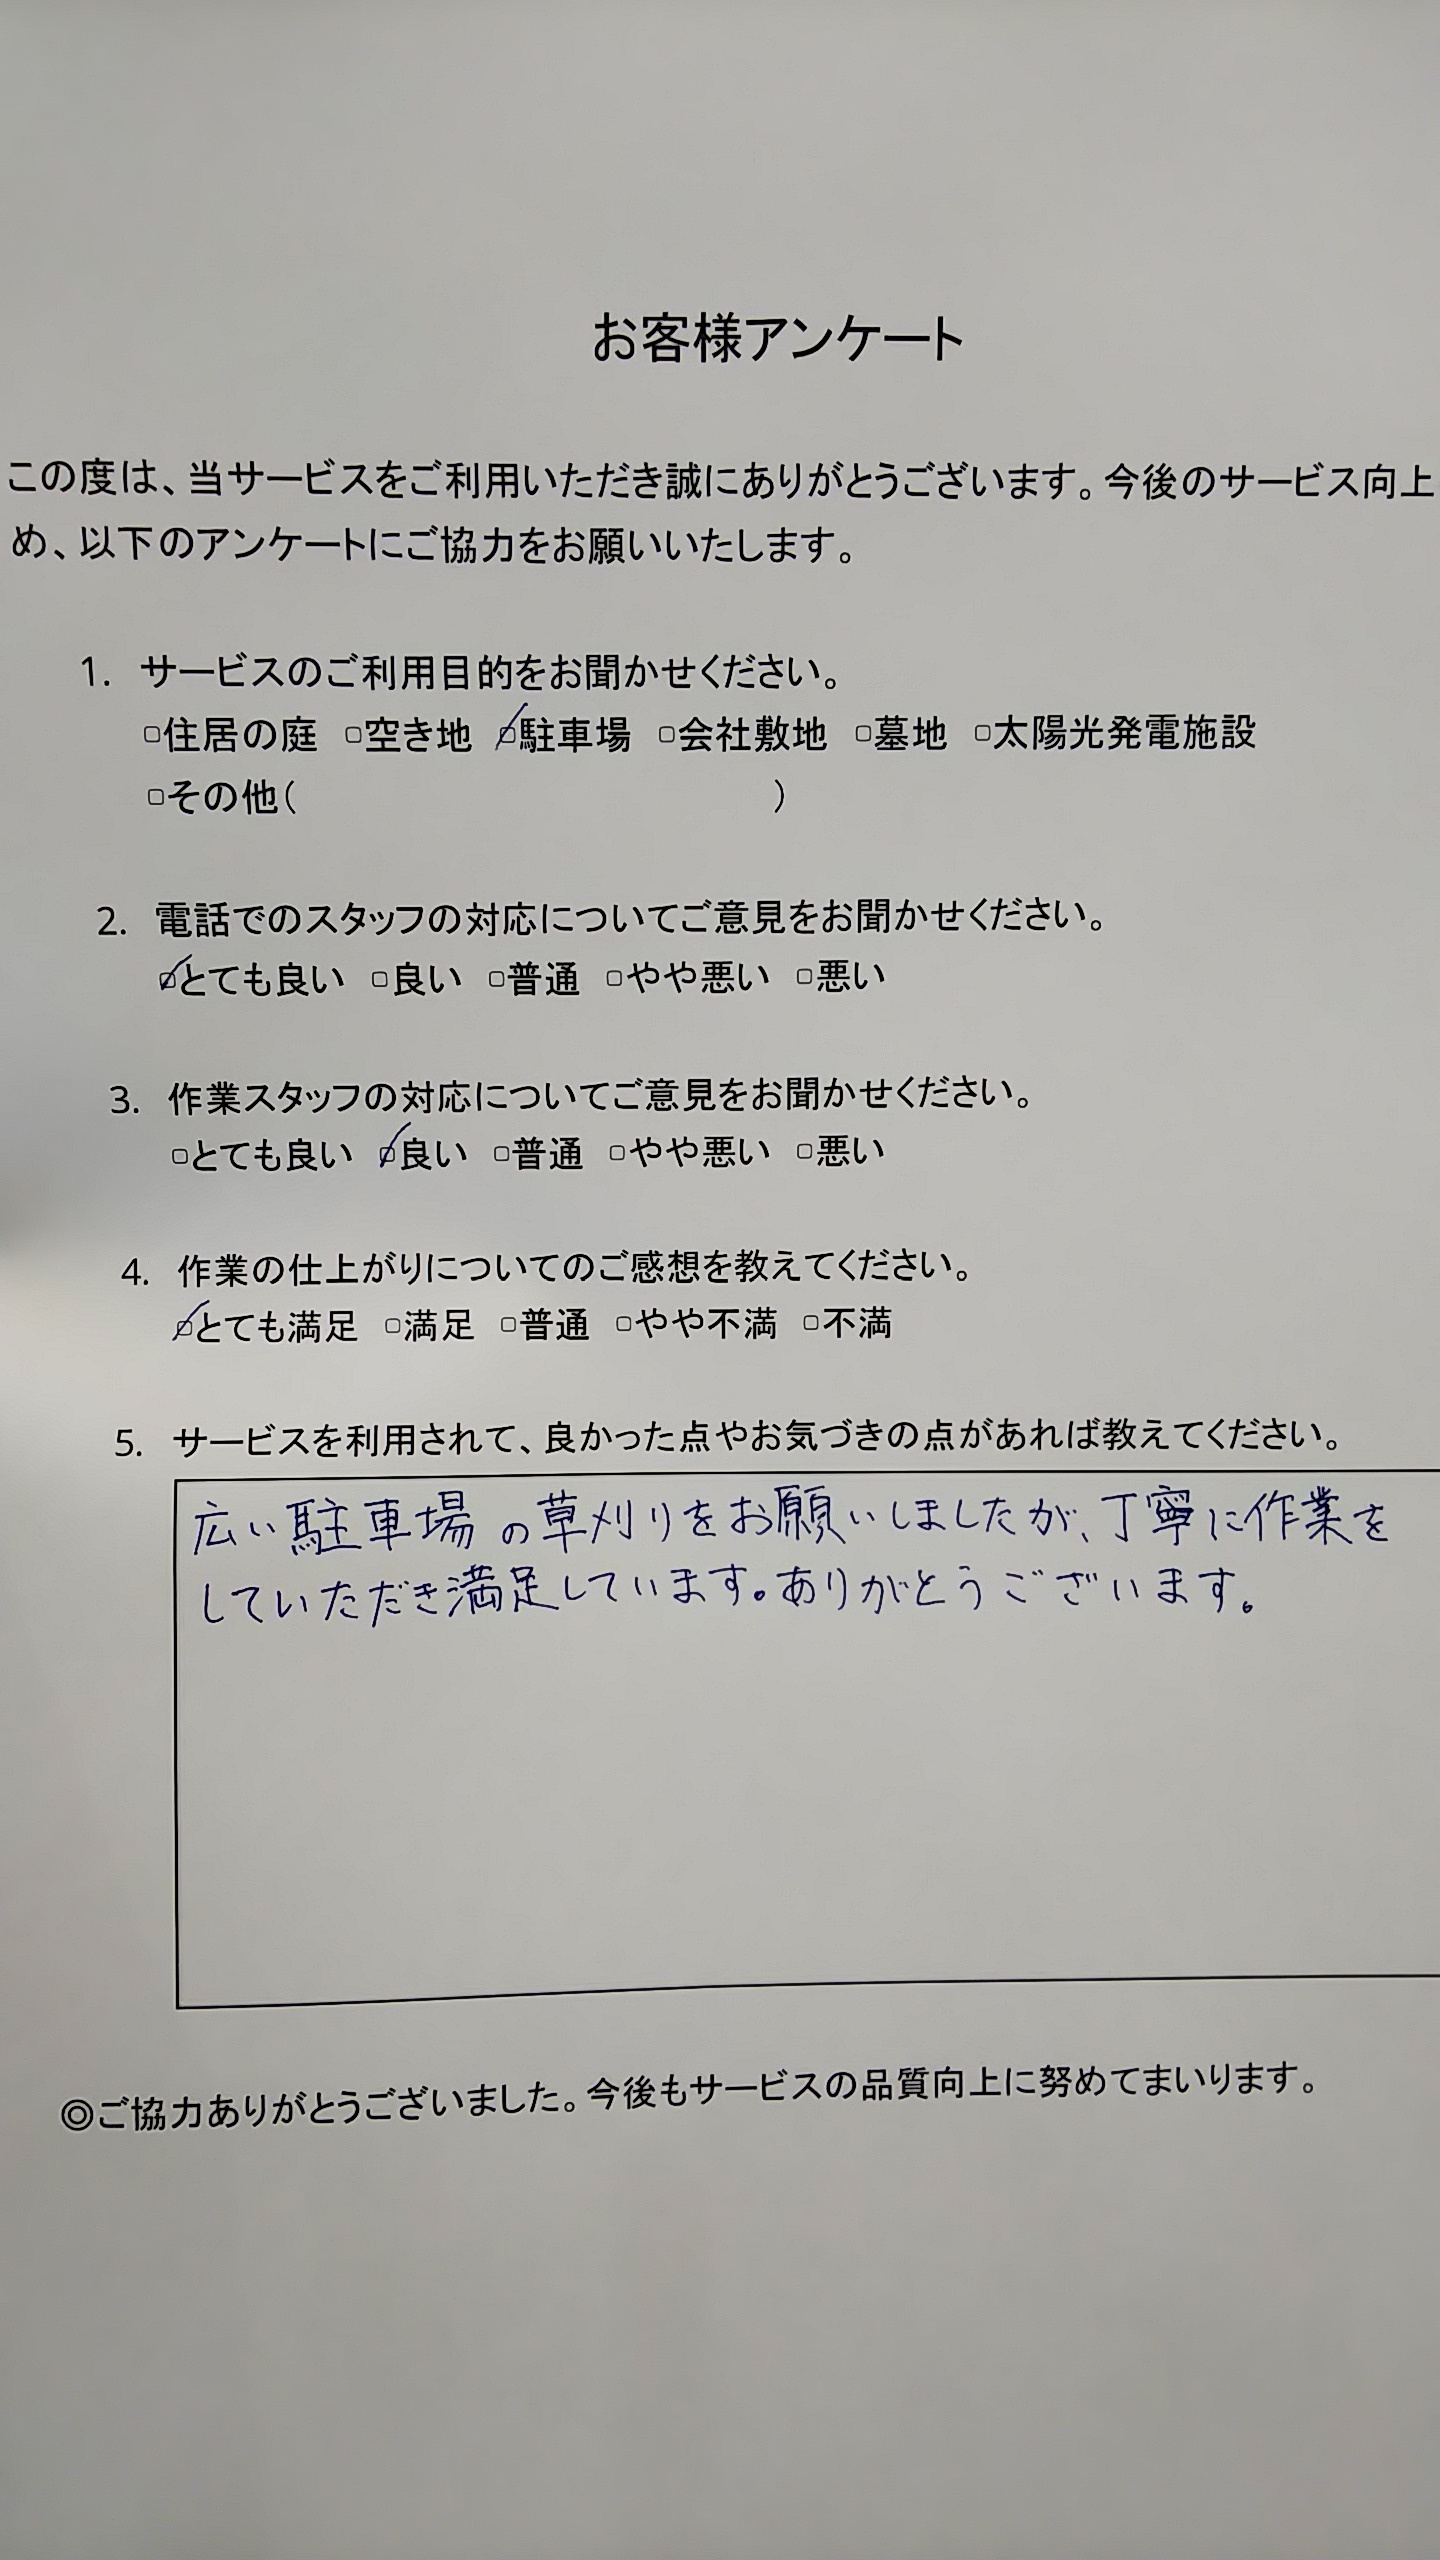 お客様アンケート
この度は、当サービスをご利用いただき誠にありがとうございます。今後のサービス向上
め、以下のアンケートにご協力をお願いいたします。
1. サービスのご利用目的をお聞かせください。
□住居の庭 □空き地 ☑駐車場 □会社敷地 □墓地 □太陽光発電施設
□その他( )
2. 電話でのスタッフの対応についてご意見をお聞かせください。
☑とても良い □良い □普通 □やや悪い □悪い
3. 作業スタッフの対応についてご意見をお聞かせください。
□とても良い ☑良い □普通 □やや悪い □悪い
4. 作業の仕上がりについてのご感想を教えてください。
☑とても満足 □満足 □普通 □やや不満 □不満
5. サービスを利用されて、良かった点やお気づきの点があれば教えてください。
広い駐車場の草刈りをお願いしましたが、丁寧に作業を
していただき満足しています。ありがとうございます。
◎ご協力ありがとうございました。今後もサービスの品質向上に努めてまいります。